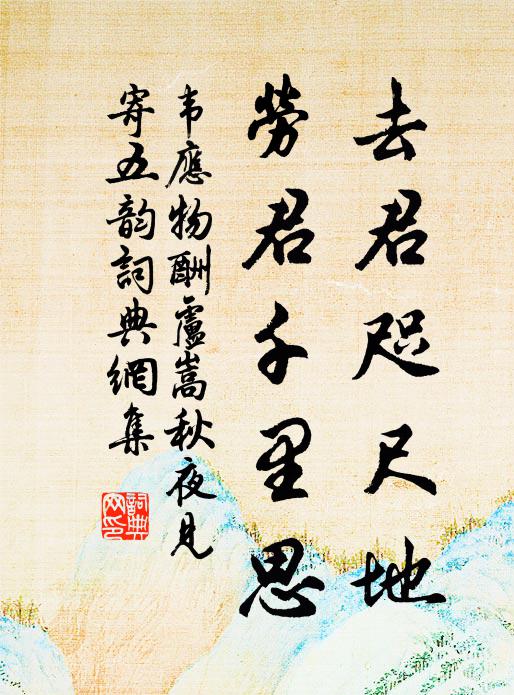 去君咫尺地
勞君千里思
韦應物酬盧嵩秋夜見
寄五韵詞典網集
詞典
网印